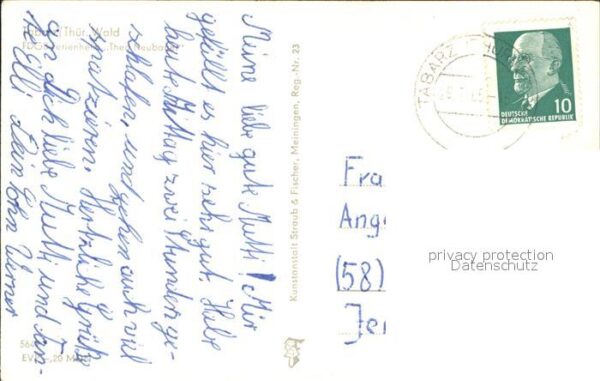 Tabarz/Thür. Wald
FDGB-Ferienheim "Theo Neubauer"
Meine liebe gute Mutti! Mir
gefällt es hier sehr gut. Habe
heute Mittag zwei Stunden ge-
schlafen, und gehen auch viel
spazieren. Herzliche Grüße
an Dich liebe Mutti und Tan-
te Elli Dein Sohn Werner
EVP -,20 MDN
Kunstanstalt Straub & Fischer, Meiningen, Reg.-Nr. 23
TABARZ
10
DEUTSCHE
DEMOKRATISCHE REPUBLIK
Fra
Ang
(58)
Jen
privacy protection
Datenschutz